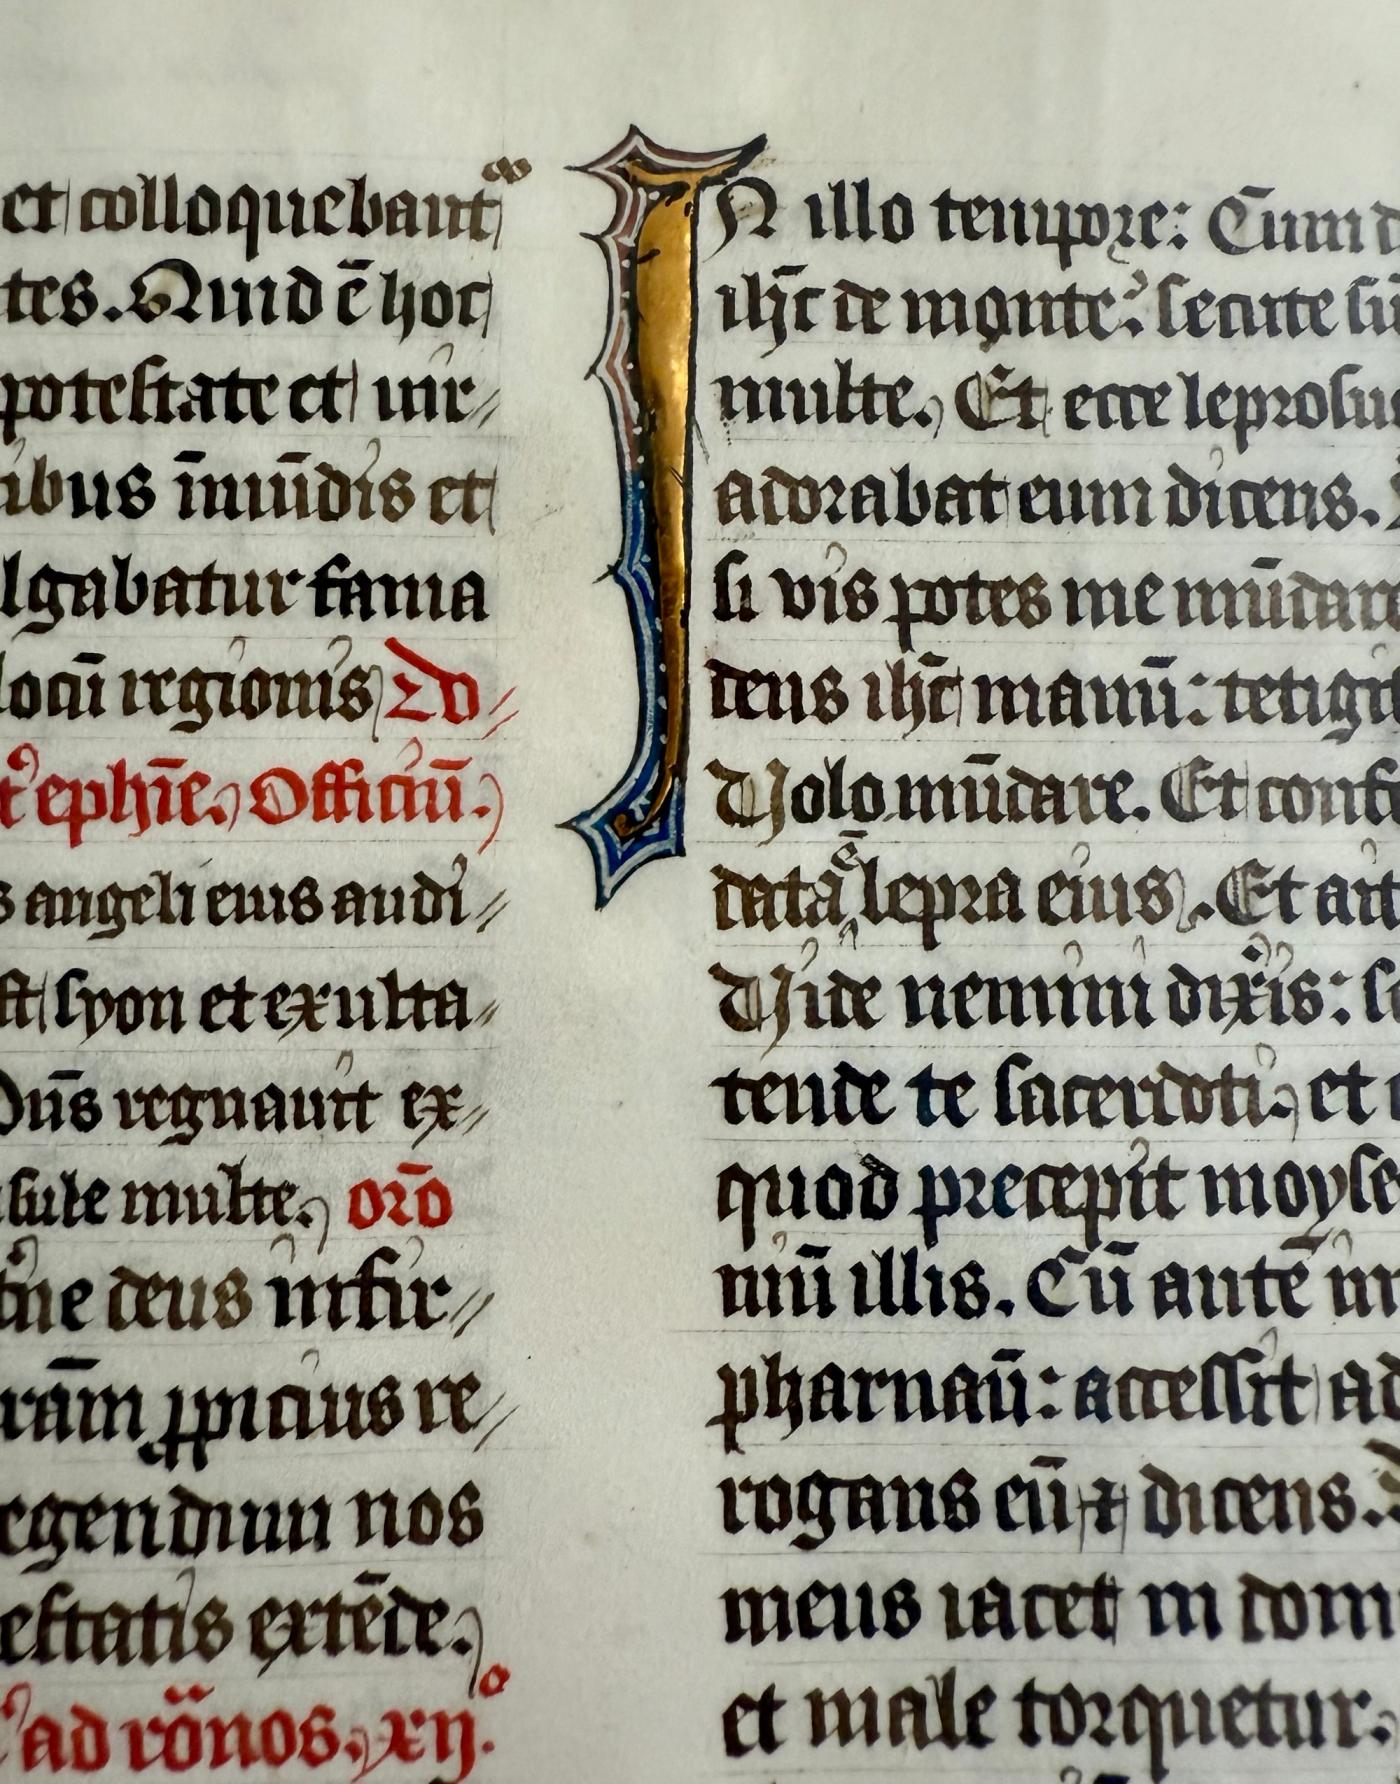 et colloquebant
tes. Quid ē hoc
potestate et uir
ibus īmūdis et
lgabatur fama
locū regionis Do
ephīe. Officiū.
s angeli eius audi
st syon et exulta
Dn̄s regnauit ex
sule multe. or̄o
ne deus infir
ram ꝓpicius re
egendum nos
estatis extēde.
ad ro̅nos. xijº.
IN illo tempore: Cum d
ih̄c de monte: secute su
multe. Et ecce leprosu
adorabat eum dicens.
si vis potes me mūdare
dens ih̄c manū: tetigit
Volo mūdare. Et conf
data ē lepra eius. Et ait
Vide nemini dixis: s
tende te sacerdoti. et
quod precepit moyse
niū illis. Cū autē in
pharnaū: accessit ad
rogans eū ⁊ dicens.
meus iacet in dom
et male torquetur.